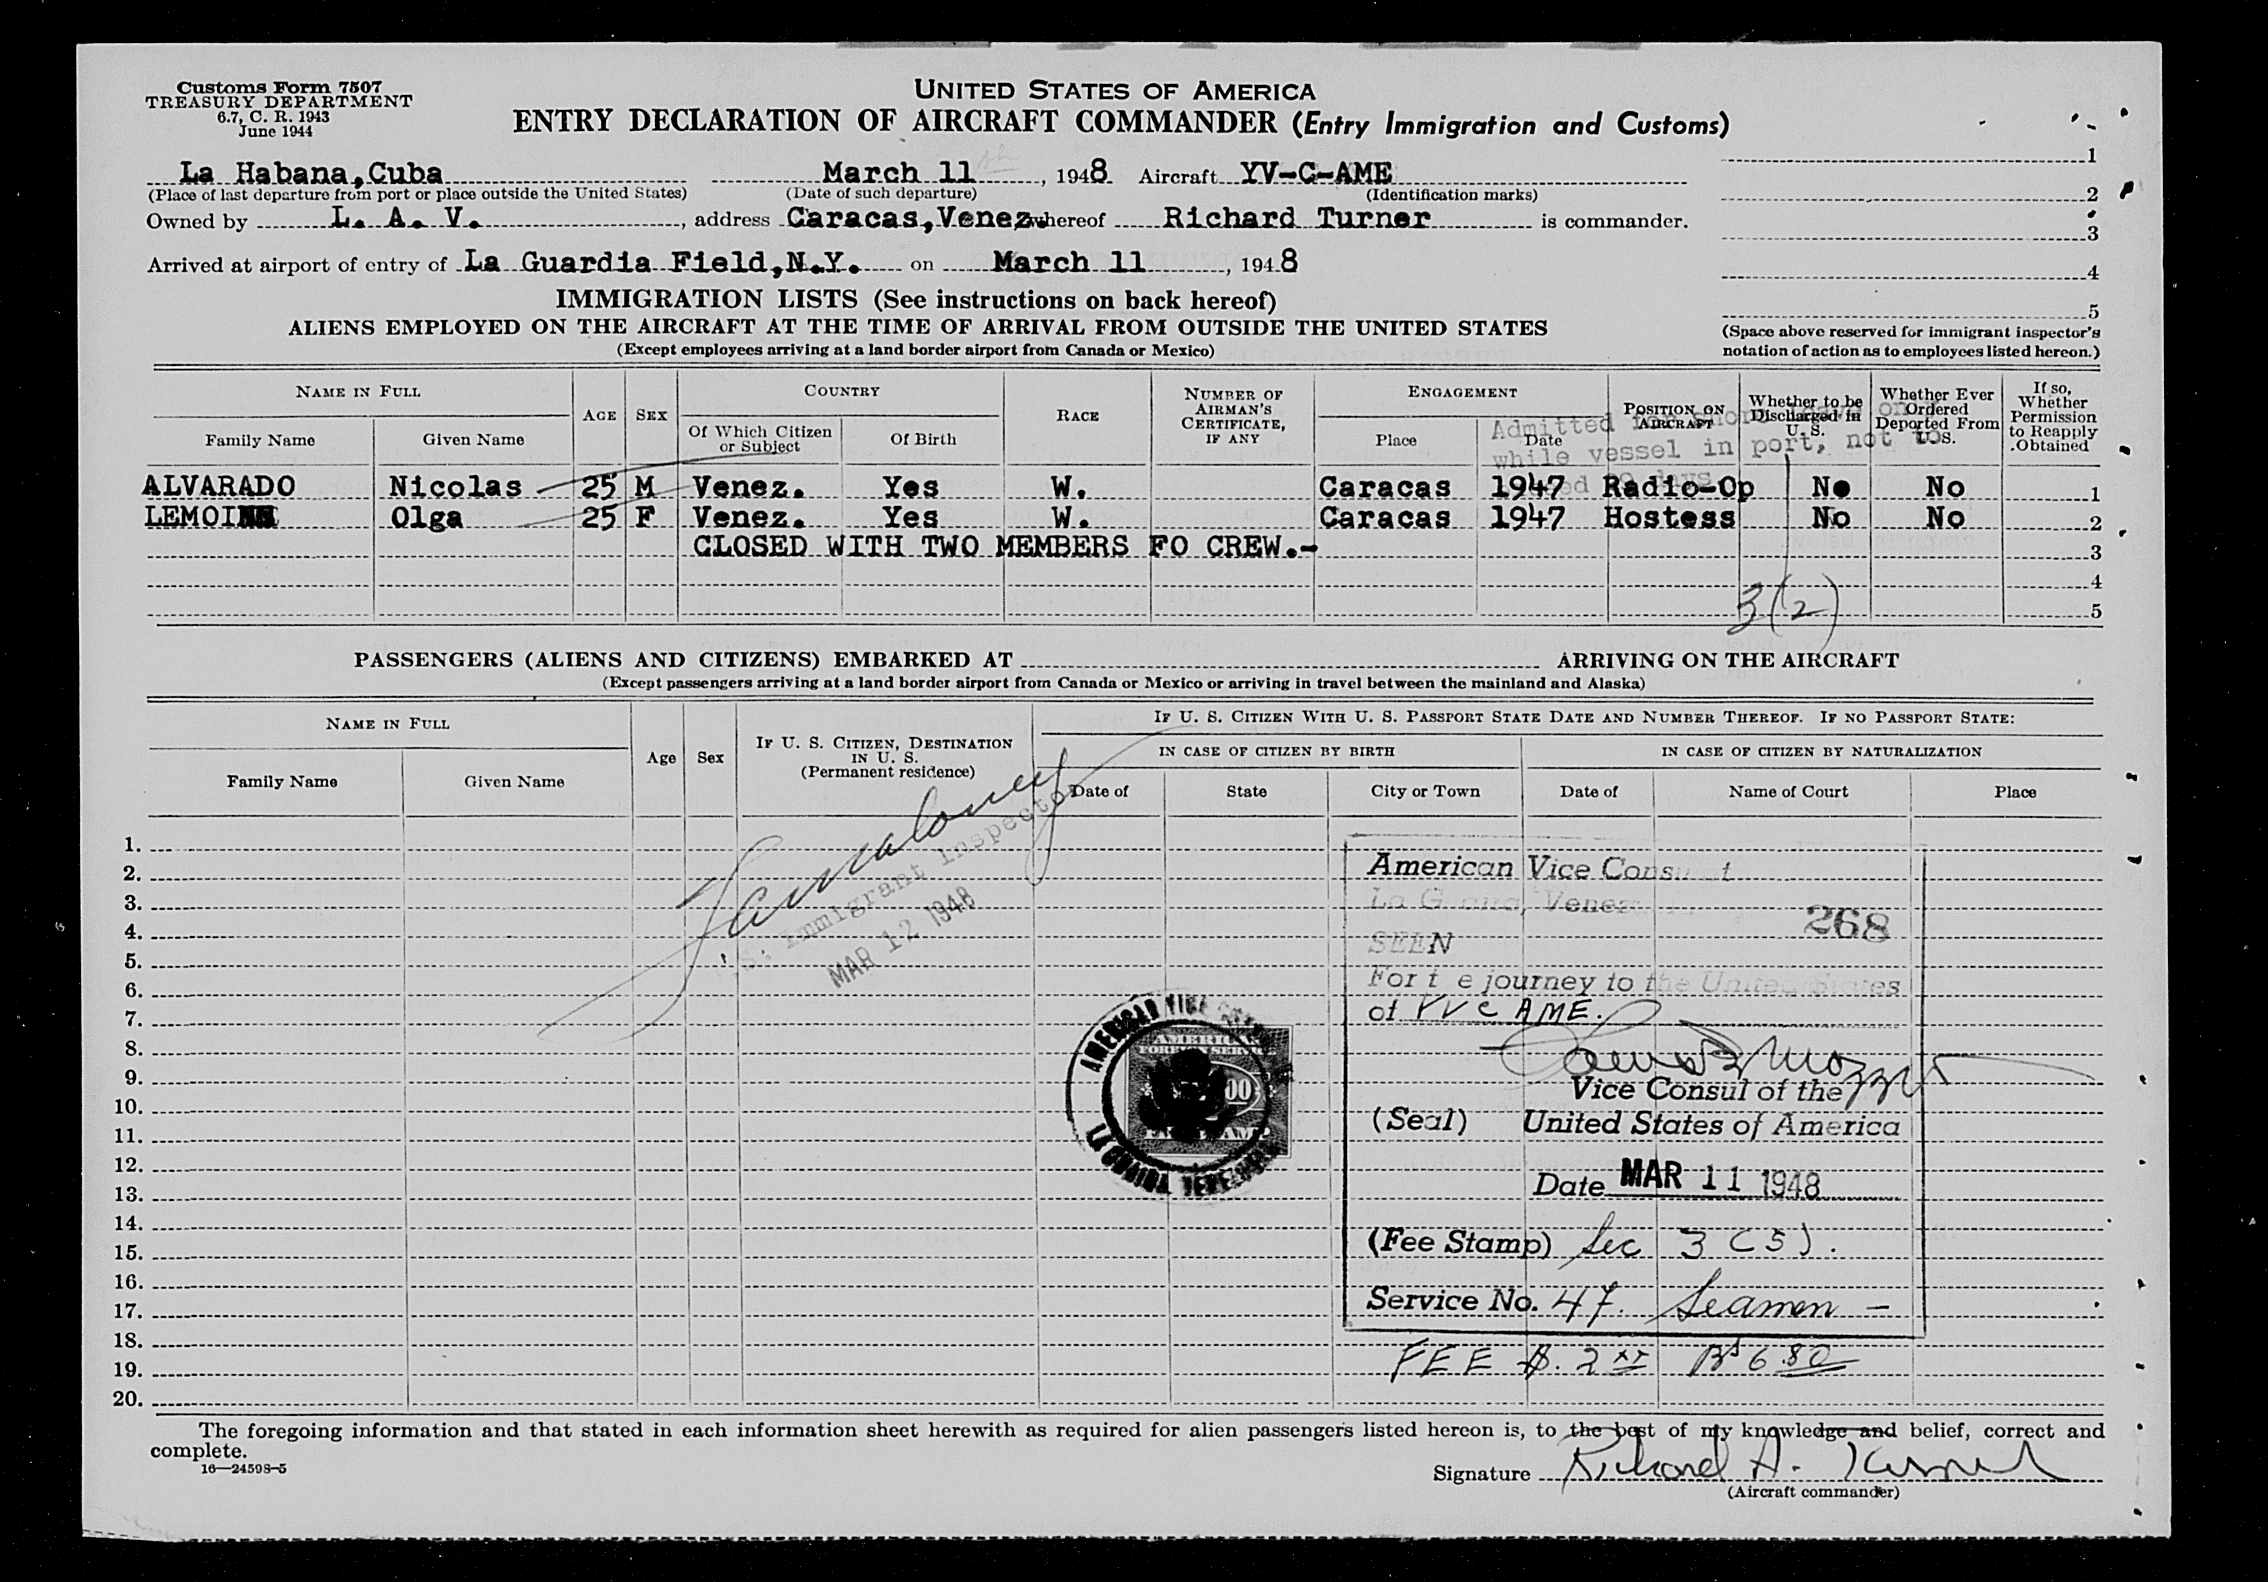 Customs Form 7507
TREASURY DEPARTMENT
6.7, C. R. 1943
June 1944
UNITED STATES OF AMERICA
ENTRY DECLARATION OF AIRCRAFT COMMANDER (Entry Immigration and Customs)
La Habana, Cuba March 11 th, 1948 Aircraft YV-C-AME
(Place of last departure from port or place outside the United States) (Date of such departure) (Identification marks)
Owned by L. A. V., address Caracas, Venez. whereof Richard Turner is commander.
Arrived at airport of entry of La Guardia Field, N.Y. on March 11, 1948
1
2
3
4
5
(Space above reserved for immigrant inspector's
notation of action as to employees listed hereon.)
IMMIGRATION LISTS (See instructions on back hereof)
ALIENS EMPLOYED ON THE AIRCRAFT AT THE TIME OF ARRIVAL FROM OUTSIDE THE UNITED STATES
(Except employees arriving at a land border airport from Canada or Mexico)
NAME IN FULL AGE SEX COUNTRY RACE NUMBER OF AIRMAN'S CERTIFICATE, IF ANY ENGAGEMENT POSITION ON AIRCRAFT Whether to be Discharged in U. S. Whether Ever Ordered Deported From U. S. If so, Whether Permission to Reapply Obtained
Family Name Given Name Of Which Citizen or Subject Of Birth Place Date
Admitted for shore leave only
while vessel in port, not to
days
ALVARADO Nicolas 25 M Venez. Yes W. Caracas 1947 Radio-Op No No 1
LEMOI Olga 25 F Venez. Yes W. Caracas 1947 Hostess No No 2
CLOSED WITH TWO MEMBERS FO CREW.- 3
4
5
3(2)
PASSENGERS (ALIENS AND CITIZENS) EMBARKED AT ARRIVING ON THE AIRCRAFT
(Except passengers arriving at a land border airport from Canada or Mexico or arriving in travel between the mainland and Alaska)
NAME IN FULL Age Sex IF U. S. CITIZEN, DESTINATION IN U. S. (Permanent residence) IF U. S. CITIZEN WITH U. S. PASSPORT STATE DATE AND NUMBER THEREOF. IF NO PASSPORT STATE:
IN CASE OF CITIZEN BY BIRTH IN CASE OF CITIZEN BY NATURALIZATION
Family Name Given Name Date of State City or Town Date of Name of Court Place
1.
2.
3.
4.
5.
6.
7.
8.
9.
10.
11.
12.
13.
14.
15.
16.
17.
18.
19.
20.
Immigrant Inspector
MAR 12 1948
AMERICAN VICE
LA GUAIRA VENEZUELA
AMERICAN
FOREIGN SERVICE
American Vice Consulat
La Guaira, Venezuela
268
SEEN
For the journey to the United States
of YVC AME.
Vice Consul of the
(Seal) United States of America
Date MAR 11 1948
(Fee Stamp) Sec 3 (5).
Service No. 47. Seamen -
FEE $. 2 xx Bs 6.80
The foregoing information and that stated in each information sheet herewith as required for alien passengers listed hereon is, to the best of my knowledge and belief, correct and
complete.
16—24598-5
Signature Richard A. Turner
(Aircraft commander)